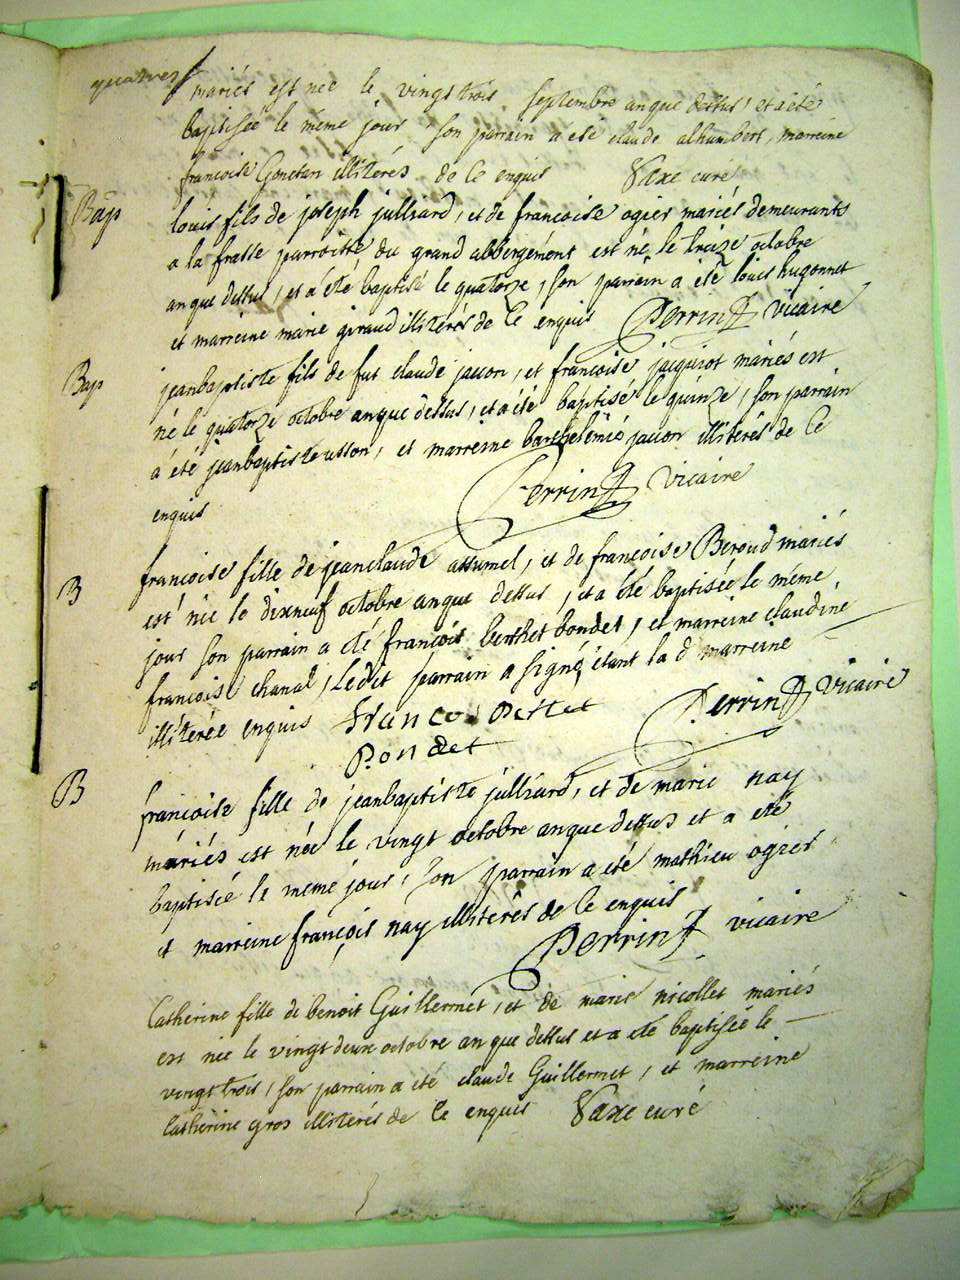 quatre
mariés est née le vingt trois septembre an que dessus, et a été
baptisée le même jour son parrain a été claude alhumbert, marreine
françoise Gonetan illitérés de ce enquis Vaxe curé
Bap louis fils de joseph julliard, et de francoise ogier mariés demeurants
a la frasse parroisse du grand abbergement est né le treize octobre
an que dessus, et a été baptisé le quatorze, son parrain a été louis hugonnet
et marreine marie giraud illitérés de ce enquis Perrin vicaire
Bap jeanbaptiste fils de fut claude jacon, et francoise jacquiot mariés est
né le quatorze octobre an que dessus, et a été baptisé le quinze, son parrain
a été jeanbaptiste usson, et marreine barthelemie jacon illitérés de ce
enquis Perrin vicaire
B francoise fille de jeanclaude assumel, et de françoise Beroud mariés
est née le dixneuf octobre an que dessus, et a été baptisée le même
jour son parrain a été françois berthet bondet, et marreine claudine
francoise chanal, Ledit parrain a signé, étant la d marreine
illitérée enquis Francois Bertet Perrin vicaire
Bondet
B françoise fille de jeanbaptiste julliard, et de marie nay
mariés est née le vingt octobre an que dessus et a été
baptisée le même jour, son parrain a été mathieu ogier
et marreine françois nay illitérés de ce enquis
Perrin vicaire
Catherine fille de benoit Guillermet, et de marie nicollet mariés
est née le vingt deux octobre an que dessus et a été baptisée le
vingt trois, son parrain a été claude Guillermet, et marreine
Catherine gros illitérés de ce enquis Vaxe curé